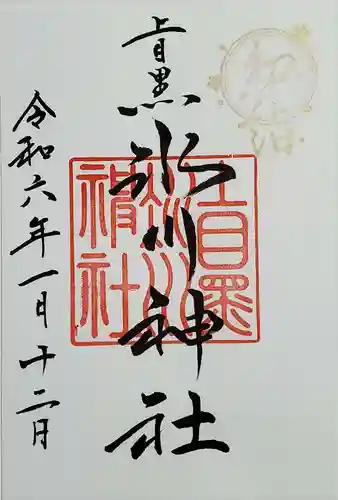 上目黒氷川神社
令和六年一月十二日
上目黒
氷川
神社
初詣